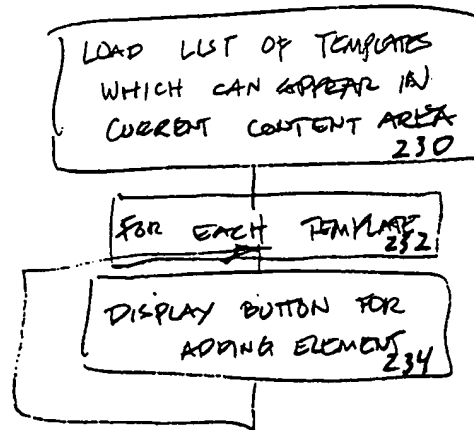 LOAD LIST OF TEMPLATES
WHICH CAN APPEAR IN
CURRENT CONTENT AREA
230
FOR EACH TEMPLATE
232
DISPLAY BUTTON FOR
ADDING ELEMENT
234